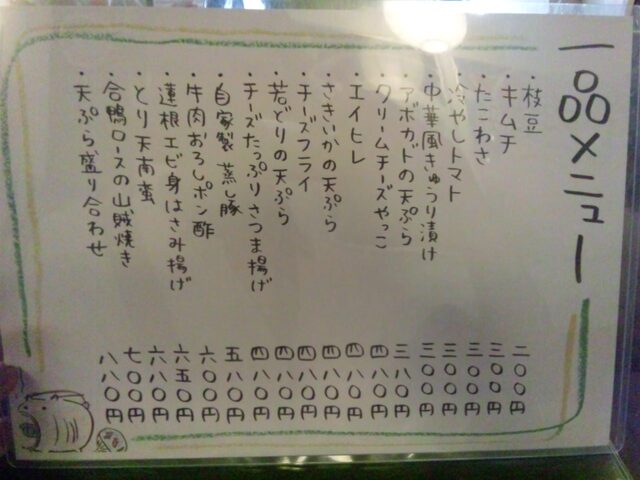 一品メニュー
・枝豆 二〇〇円
・キムチ 三〇〇円
・たこわさ 三〇〇円
・冷やしトマト 三〇〇円
・中華風きゅうり漬け 三〇〇円
・アボガトの天ぷら 三八〇円
・クリームチーズやっこ 四八〇円
・エイヒレ 四八〇円
・さきいかの天ぷら 四八〇円
・チーズフライ 四八〇円
・若どりの天ぷら 四八〇円
・チーズたっぷりさつま揚げ 四八〇円
・自家製 蒸し豚 五八〇円
・牛肉おろしポン酢 六〇〇円
・蓮根エビ身はさみ揚げ 六五〇円
・とり天南蛮 六八〇円
・合鴨ロースの山賊焼き 七〇〇円
・天ぷら盛り合わせ 八八〇円